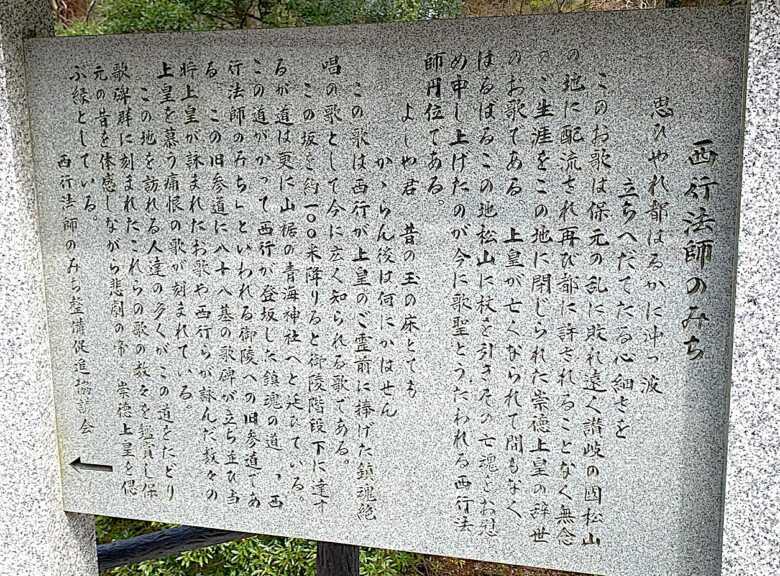 西行法師のみち
思ひやれ都はるかに沖つ波
立ちへだてたる心細さを
このお歌は保元の乱に敗れ遠く讃岐の國松山
の地に配流され再び都に許されることなく無念
のご生涯をこの地に閉じられた崇徳上皇の辞世
のお歌である 上皇が亡くなられて間もなく
はるばるこの地松山に杖を引きその亡魂をお慰
め申し上げたのが今に歌聖とうたわれる西行法
師円位である。
よしや君 昔の玉の床とても
かゝらん後は何にかはせん
この歌は西行が上皇のご霊前に捧げた鎮魂絶
唱の歌として今に広く知られる歌である。
この坂を約一〇〇米降りると御陵階段下に達す
るが道は更に山裾の青海神社へと延びている
この道がかつて西行が登坂した鎮魂の道、「西
行法師のみち」といわれる御陵への旧参道であ
る。この旧参道に八十八基の歌碑が立ち並び当
時上皇が詠まれたお歌や西行らが詠んだ数々の
上皇を慕う痛恨の歌が刻まれている。
この地を訪れる人達の多くがこの道をたどり
歌碑群に刻まれたこれらの歌の数々を鑑賞し保
元の昔を偲びながら悲劇の帝、崇徳上皇を偲
ぶ縁としている。
西行法師のみち整備促進協議会